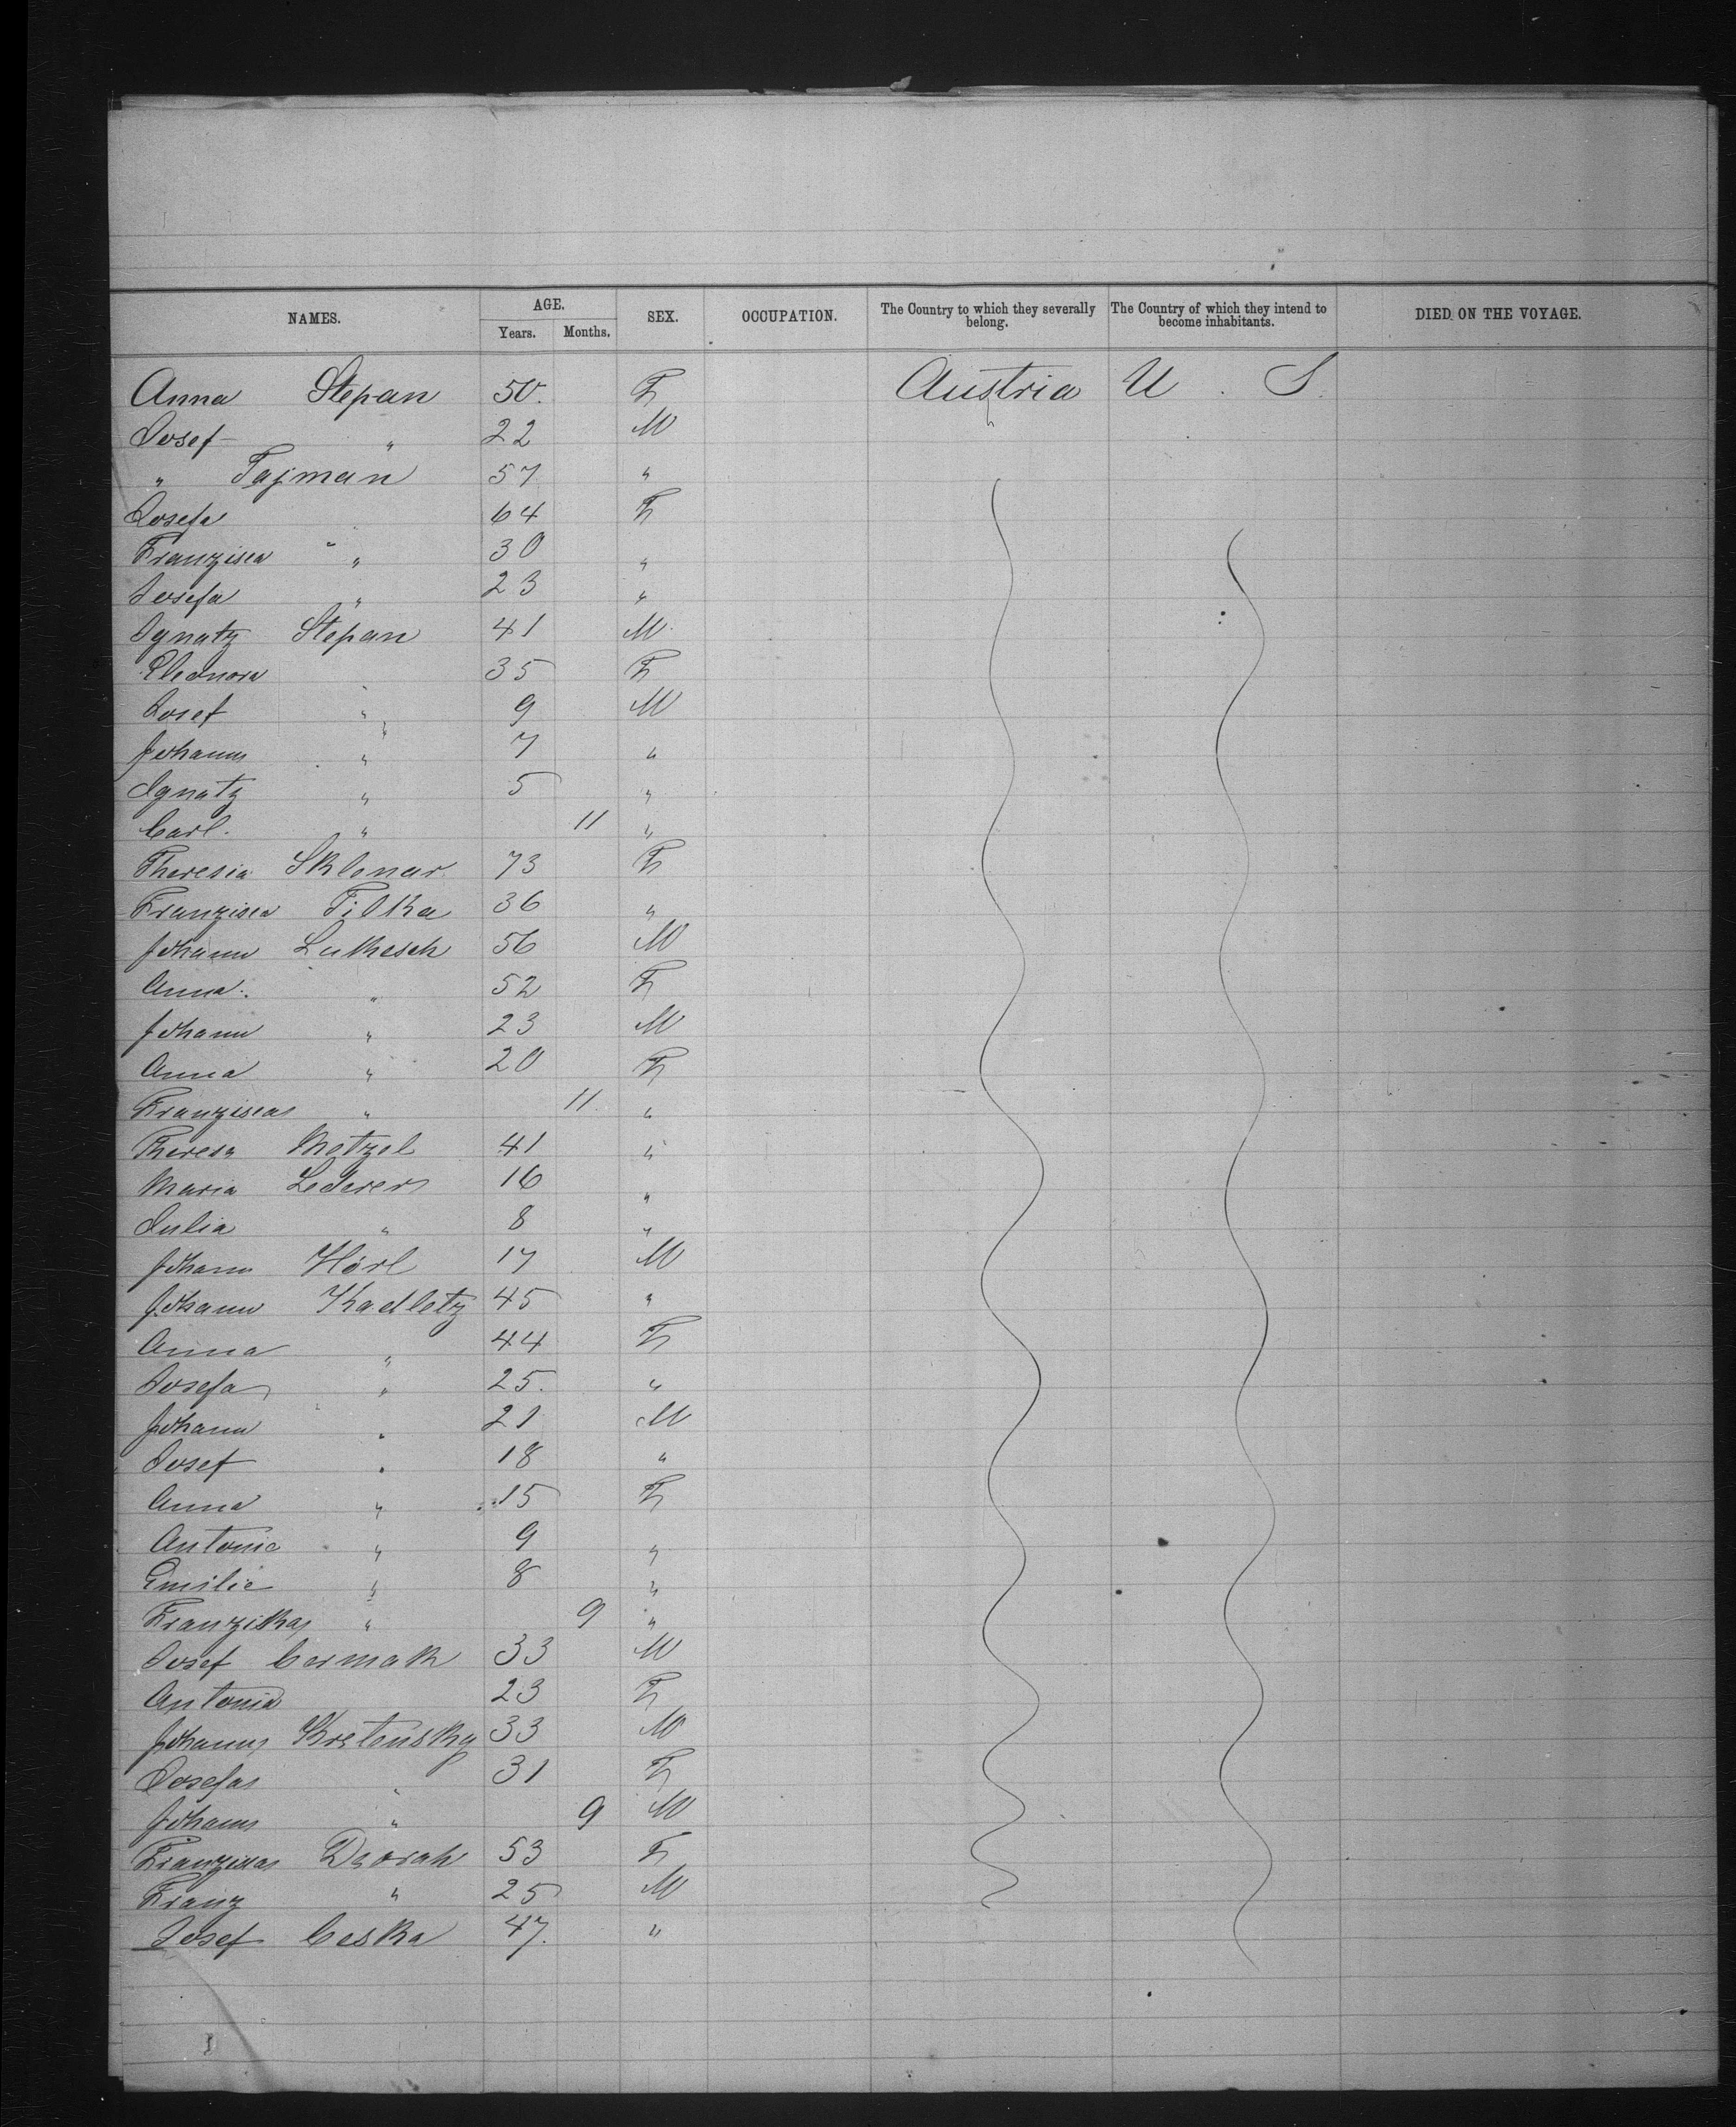 NAMES. AGE. SEX. OCCUPATION. The Country to which they severally belong. The Country of which they intend to become inhabitants. DIED ON THE VOYAGE.
Years. Months.
Anna Stepan 50. F Austria U. S.
Josef " 22 M
" Tajman 57 "
Josefa 64 F
Franzisca " " 30 "
Josefa " 23 "
Ignatz Stepan 41 M
Eleonora 35 F
Josef " 9 M
Johann " 7 "
Ignatz " 5 "
Carl. " 11 "
Theresia Sklenar 73 F
Franzisca Filka 36 "
Johann Lukesch 56 M
Anna. " 52 F
Johann " 23 M
Anna " 20 F
Franzisca " 11 "
Theresa Metzel 41 "
Maria Lederer 16 "
Julia " 8 "
Johann Hörl 17 M
Johann Kadletz 45 "
Anna " 44 F
Josefa " 25. "
Johann " 21 M
Josef " 18 "
Anna " 15 F
Antonie " 9 "
Emilie " 8 "
Franziska " 9 "
Josef Cermak 33 M
Antonia 23 F
Johann Kretensky 33 M
Josefa " 31 F
Johann " 9 M
Franzisca 53 F
Franz " 25 M
Josef Ceska 47. "